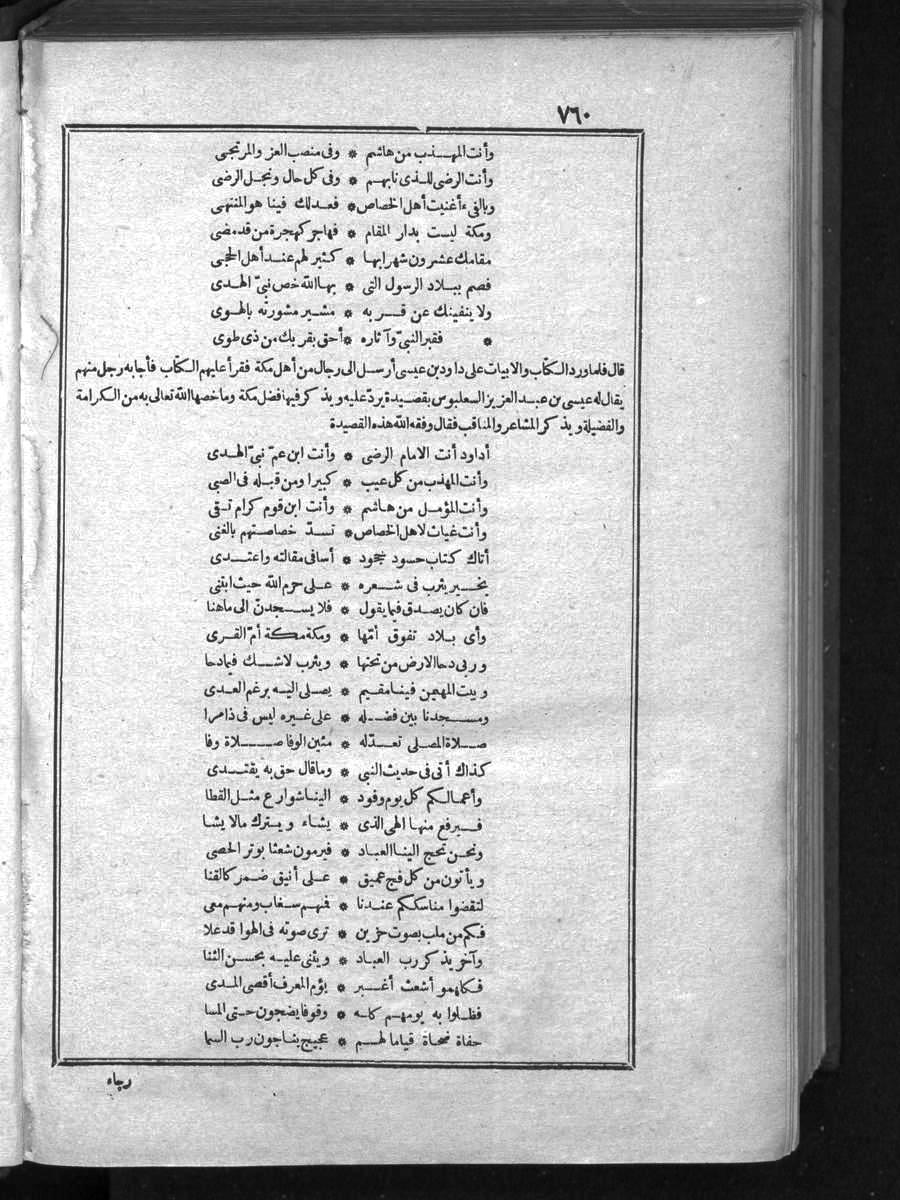 ٧٦٠
وأنت المهذب من هاشم * وفى منصب العز والمرتجى
وأنت الرضى للذى نابهم * وفى كل حال ونجل الرضى
وبالفىء أغنيت أهل الخصاص * فعدلك فينا هو المنتهى
ومكة ليست بدار المقام * فهاجر كهجرة من قد مضى
مقامك عشرون شهرا بها * كثير لهم عند أهل الحجى
فصم ببلاد الرسول التى * بها الله خص نبىّ الهدى
ولا ينفينك عن قربه * مشير مشورته بالهوى
* فقبر النبىّ وآثاره * أحق بقربك من ذى طوى
قال فلما ورد الكتاب والابيات على داود بن عيسى أرسل الى رجال من أهل مكة فقرأ عليهم الكتاب فأجابه رجل منهم
يقال له عيسى بن عبد العزيز السعلبوس بقصيدة يردّ عليه ويذكر فيها فضل مكة وما خصها الله تعالى به من الكرامة
والفضيلة ويذكر المشاعر والمناقب فقال وفقه الله هذه القصيدة
أداود أنت الامام الرضى * وأنت ابن عمّ نبىّ الهدى
وأنت المهذب من كل عيب * كبيرا ومن قبله فى الصبى
وأنت المؤمل من هاشم * وأنت ابن قوم كرام تقى
وأنت غياث لاهل الخصاص * تسدّ خصاصتهم بالغنى
أتاك كتاب حسود جحود * أسافى مقالته واعتدى
يخير يثرب فى شعره * على حرم الله حيث ابتنى
فان كان يصدق فيما يقول * فلا يسجدن الى ماهنا
وأى بلاد تفوق أمّها * ومكة مكة أمّ القرى
وربى دحا الارض من تحتها * ويثرب لاشك فيما دحا
وبيت المهيمن فينا مقيم * يصلى اليه برغم العدى
ومسجدنا بين فضله * على غيره ليس فى ذا مرا
صلاة المصلى تعدّ له * مئين الوفا صلاة وفا
كذاك أتى فى حديث النبى * وما قال حق به يقتدى
وأعمالكم كل يوم وفود * الينا شوارع مثل القطا
فيرفع منها الهى الذى * يشاء ويترك مالا يشا
ونحن تحج الينا العباد * فيرمون شعثا بوتر الحصى
ويأتون من كل فج عميق * على أنيق ضمر كالقنا
لتقضوا مناسككم عندنا * فمنهم سغاب ومنهم معى
فكم من ملب بصوت حزين * ترى صوته فى الهوا قد علا
وآخر يذكر رب العباد * ويثنى عليه بحسن الثنا
فكلهمو أشعث أغبر * يؤم المعرف أقصى المدى
فظلوا به يومهم كله * وقوفا يضجون حتى المسا
حفاة ضحاة قياما لهم * عجيج يناجون رب السما
رجاء